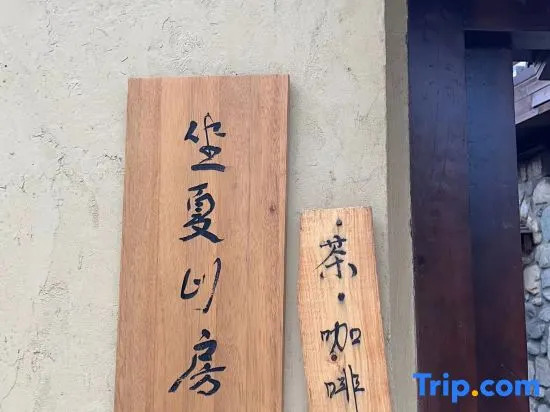 坐夏山房
·茶·咖啡
Trip.com